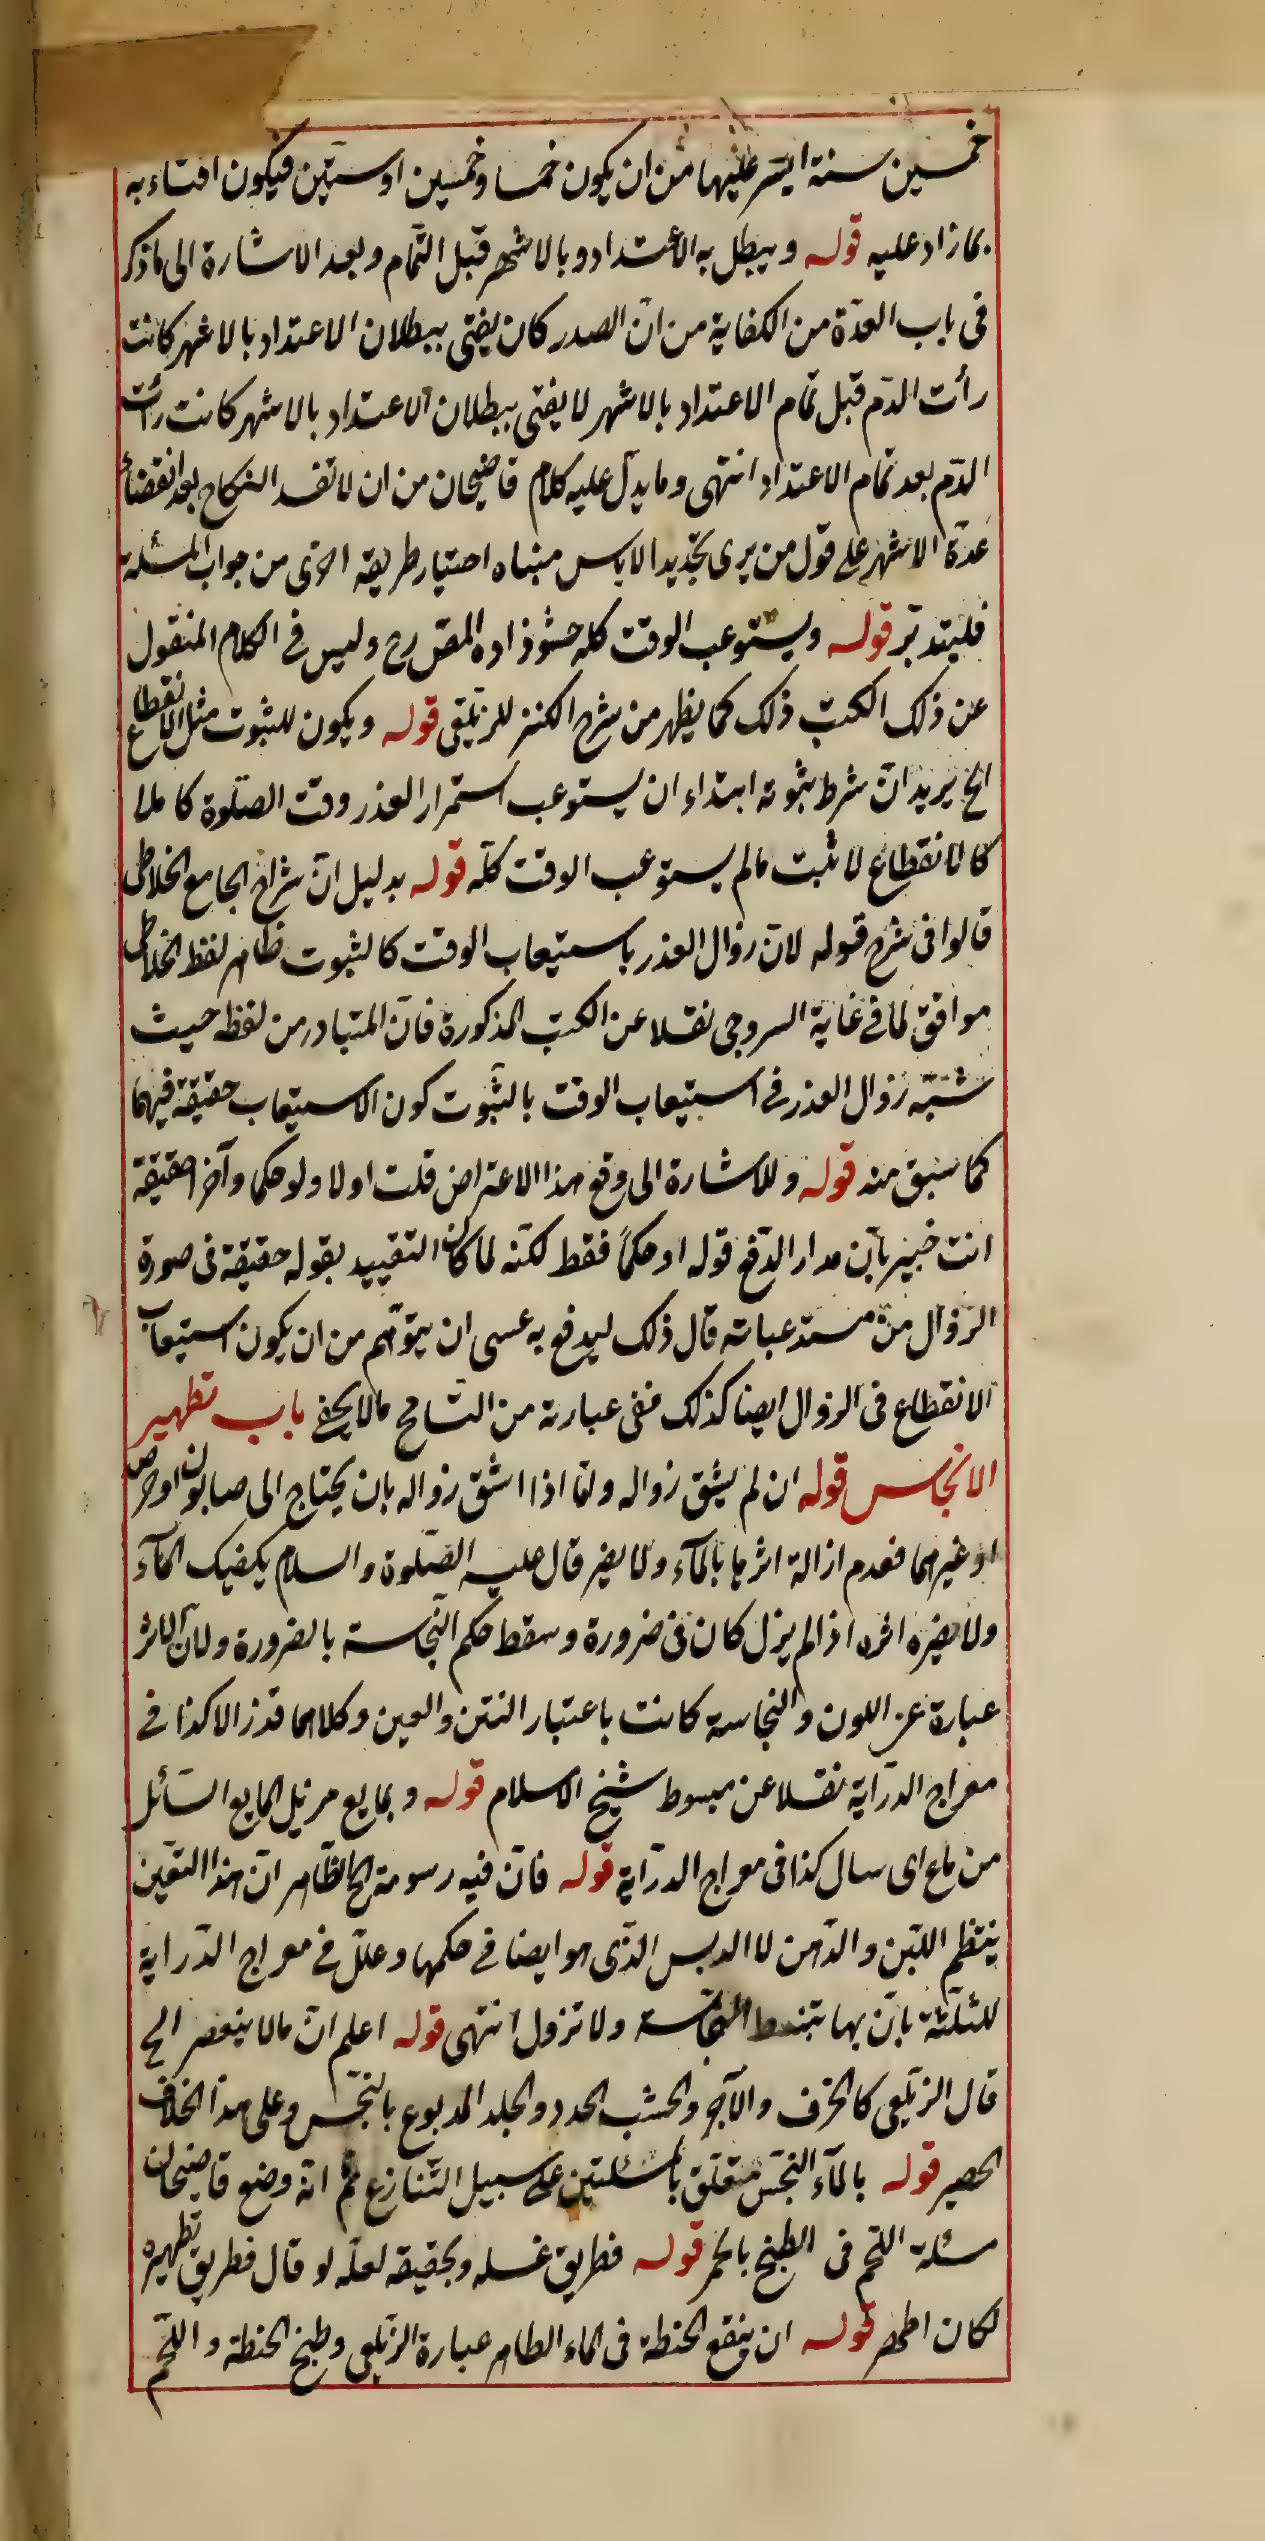 خمسين سنة ايسر عليها من ان يكون خمسا وخمسين او ستين فيكون افتاء به
بما زاد عليه قوله ويبطل به الاعتداد وبالاشهر قبل التمام وبعد الاشارة الى ما ذكر
فى باب العدّة من الكفاية من انّ الصدر كان يفتى ببطلان الاعتداد بالاشهر كانت
رأت الدّم قبل تمام الاعتداد بالاشهر لا يفتى ببطلان الاعتداد بالاشهر كانت رأت
الدّم بعد تمام الاعتداد انتهى وما يدلّ عليه كلام قاضيخان من ان لا تفسد النكاح بعد انقضاء
عدّة الاشهر على قول من يرى تجديد الاياس مبناه اختيار طريقه اخرى من جواب المسئلة
فليتدبّر قوله ويستوعب الوقت كله حشو زاده المص رح وليس فى الكلام المنقول
عن ذلك الكتب ذلك كما يظهر من شرح الكنز للزيلعى قوله ويكون للثبوت مثل الانقطاع
الخ يريد انّ شرط ثبوته ابتداء ان يستوعب استمرار العذر وقت الصّلوة كاملا
كالانقطاع لا يثبت مالم يستوعب الوقت كلّه قوله بدليل انّ شراح الجامع الخلاطى
قالوا فى شرح قوله لانّ زوال العذر باستيعاب الوقت كالثبوت ظاهر لفظ الخلاطى
موافق لما فى غاية السروجى نقلا عن الكتب المذكورة فانّ المتبادر من لفظه حيث
شبّه زوال العذر فى استيعاب الوقت بالثّبوت كون الاستيعاب حقيقة فيهما
كما سبق منه قوله وللاشارة الى دفع هذا الاعتراض قلت اولا ولو حكما وآخرا حقيقة
انت خبير بانّ مدار الدّفع قوله او حكمًا فقط لكنّه لما كان التقييد بقوله حقيقة فى صورة
الزوال من مستدعياته قال ذلك ليدفع به عسى ان يتوهّم من ان يكون استيعاب
الانقطاع فى الزوال ايضا كذلك ففى عبارته من التّسامح مالا يخفى باب تطهير
الانجاس قوله ان لم يشق زواله وامّا اذا اشق زواله بان يحتاج الى صابون او حرض
او غيرهما فعدم ازالة اثرها بالمآء ولا يضر قال عليه الصّلوة والسلام يكفيك المآء
ولا يضره اثره اذ الم يزل كان فى ضرورة وسقط حكم النّجاسة بالضرورة ولانّ الاثر
عبارة عن اللون والنجاسة كانت باعتبار النتن والعين وكلاهما قد زالا كذا فى
معراج الدرّاية نقلا عن مبسوط شيخ الاسلام قوله وبمايع مزيل المايع السّائل
من ماع اى سال كذا فى معراج الدرّاية قوله فانّ فيه رسومة الخ الظّاهر انّ هذا التعين
ينتظم اللّبن والدّهن لا الدبس الذّى هو ايضا فى حكمها وعلّل فى معراج الدّراية
للثلثة بانّ بها تنبسط النّجاسة ولا تزول انتهى قوله اعلم انّ مالا ينعصر الخ
قال الزيلعى كالخزف والآجر والخشب الجدد والجلد المدبوغ بالنّجس وعلى هذا الخلاف
الحصير قوله بالمآء النّجس متعلّق بالمسئلتين على سبيل التّنازع ثم انّه وضع قاضيخان
مسئلة اللّحم فى الطبخ بالخمر قوله فطريق غسله وتجفيفه لعلّه لو قال فطريق تطهيره
لكان اظهر قوله ان ينقع الحنطة فى الماء الطاهر عبارة الزيلعى وطبخ الحنطة واللّحم